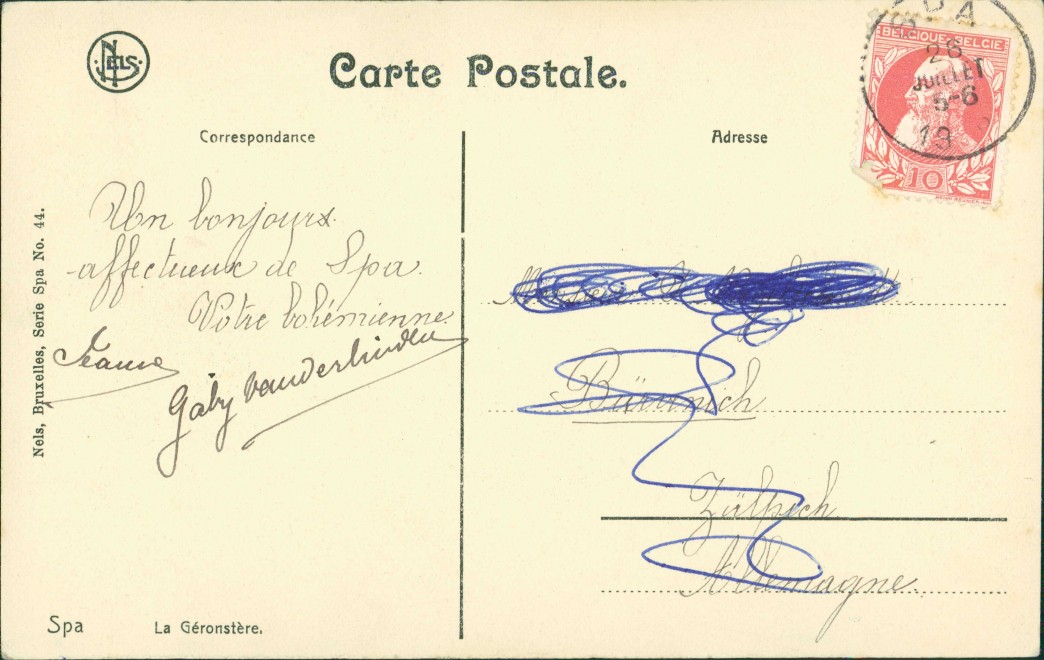 NELS.
Carte Postale.
SPA
BELGIQUE-BELGIË
26
JUILLET
5-6
19
10
Correspondance
Adresse
Un bonjours
affectueux de Spa.
Votre bohémienne.
Jeanne
Gaby Vanderlinden
Monsieur
Bürvenich
Zülpich
Allemagne.
Nels, Bruxelles, Serie Spa No. 44.
Spa La Géronstère.